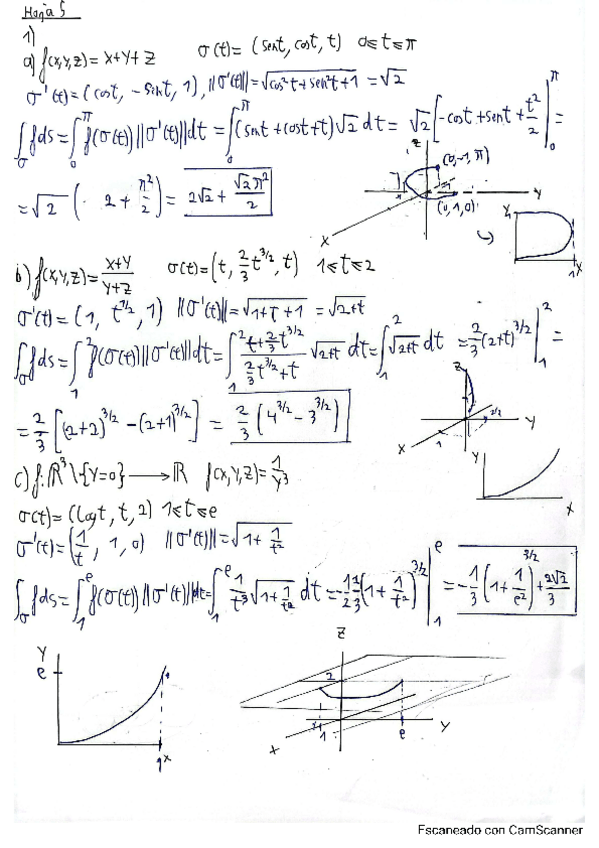 Hoja 5
1)
a) f(x,y,z) = x+y+z   σ(t) = (sent, cost, t)   0≤t≤π
σ'(t) = (cost, -sint, 1), ||σ'(t)|| = √(cos²t+sen²t+1) = √2
∫_σ f ds = ∫_0^π f(σ(t)) ||σ'(t)|| dt = ∫_0^π (sent+cost+t) √2 dt = √2 [-cost+sent+t²/2] |_0^π =
= √2 ( 2 + π²/2) = 2√2 + √2π²/2
Z (0,-1,π) Y (0,1,0) X
Y 1 X
b) f(x,y,z) = (x+y)/(y+z)   σ(t) = (t, 2/3 t^3/2, t)   1≤t≤2
σ'(t) = (1, t^1/2, 1)   ||σ'(t)|| = √(1+t+1) = √(2+t)
∫_σ f ds = ∫_1^2 f(σ(t)) ||σ'(t)|| dt = ∫_1^2 (t+2/3 t^3/2)/(2/3 t^3/2+t) √(2+t) dt = ∫_1^2 √(2+t) dt = 2/3 (2+t)^3/2 |_1^2 =
= 2/3 [(2+2)^3/2 - (2+1)^3/2] = 2/3 (4^3/2 - 3^3/2)
Z Y X 1
Y X
c) f: ℝ³\{y=0} → ℝ   f(x,y,z) = 1/y³
σ(t) = (logt, t, 2)   1≤t≤e
σ'(t) = (1/t, 1, 0)   ||σ'(t)|| = √(1+1/t²)
∫_σ f ds = ∫_1^e f(σ(t)) ||σ'(t)|| dt = ∫_1^e 1/t³ √(1+1/t²) dt = -1/2 2/3 (1+1/t²)^3/2 |_1^e = -1/3 (1+1/e²)^3/2 + 2√2/3
Y e 1 X
Z 2 1 e Y X
Escaneado con CamScanner